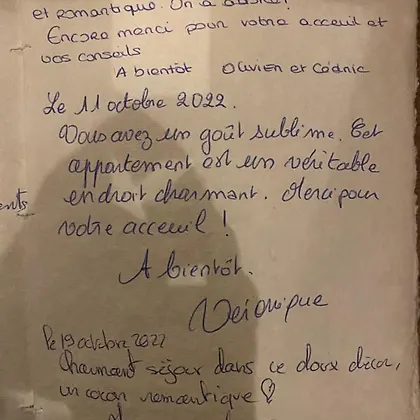 et romantique. On a adoré !
Encore merci pour votre acceuil et
vos conseils
A bientôt Olivien et Cédric
Le 11 octobre 2022.
Vous avez un goût sublime. Cet
appartement est un véritable
endroit charmant. Merci pour
ents
votre acceuil !
A bientôt.
Véronique
Le 19 octobre 2022
Charmant séjour dans ce doux décor,
un cocon romantique